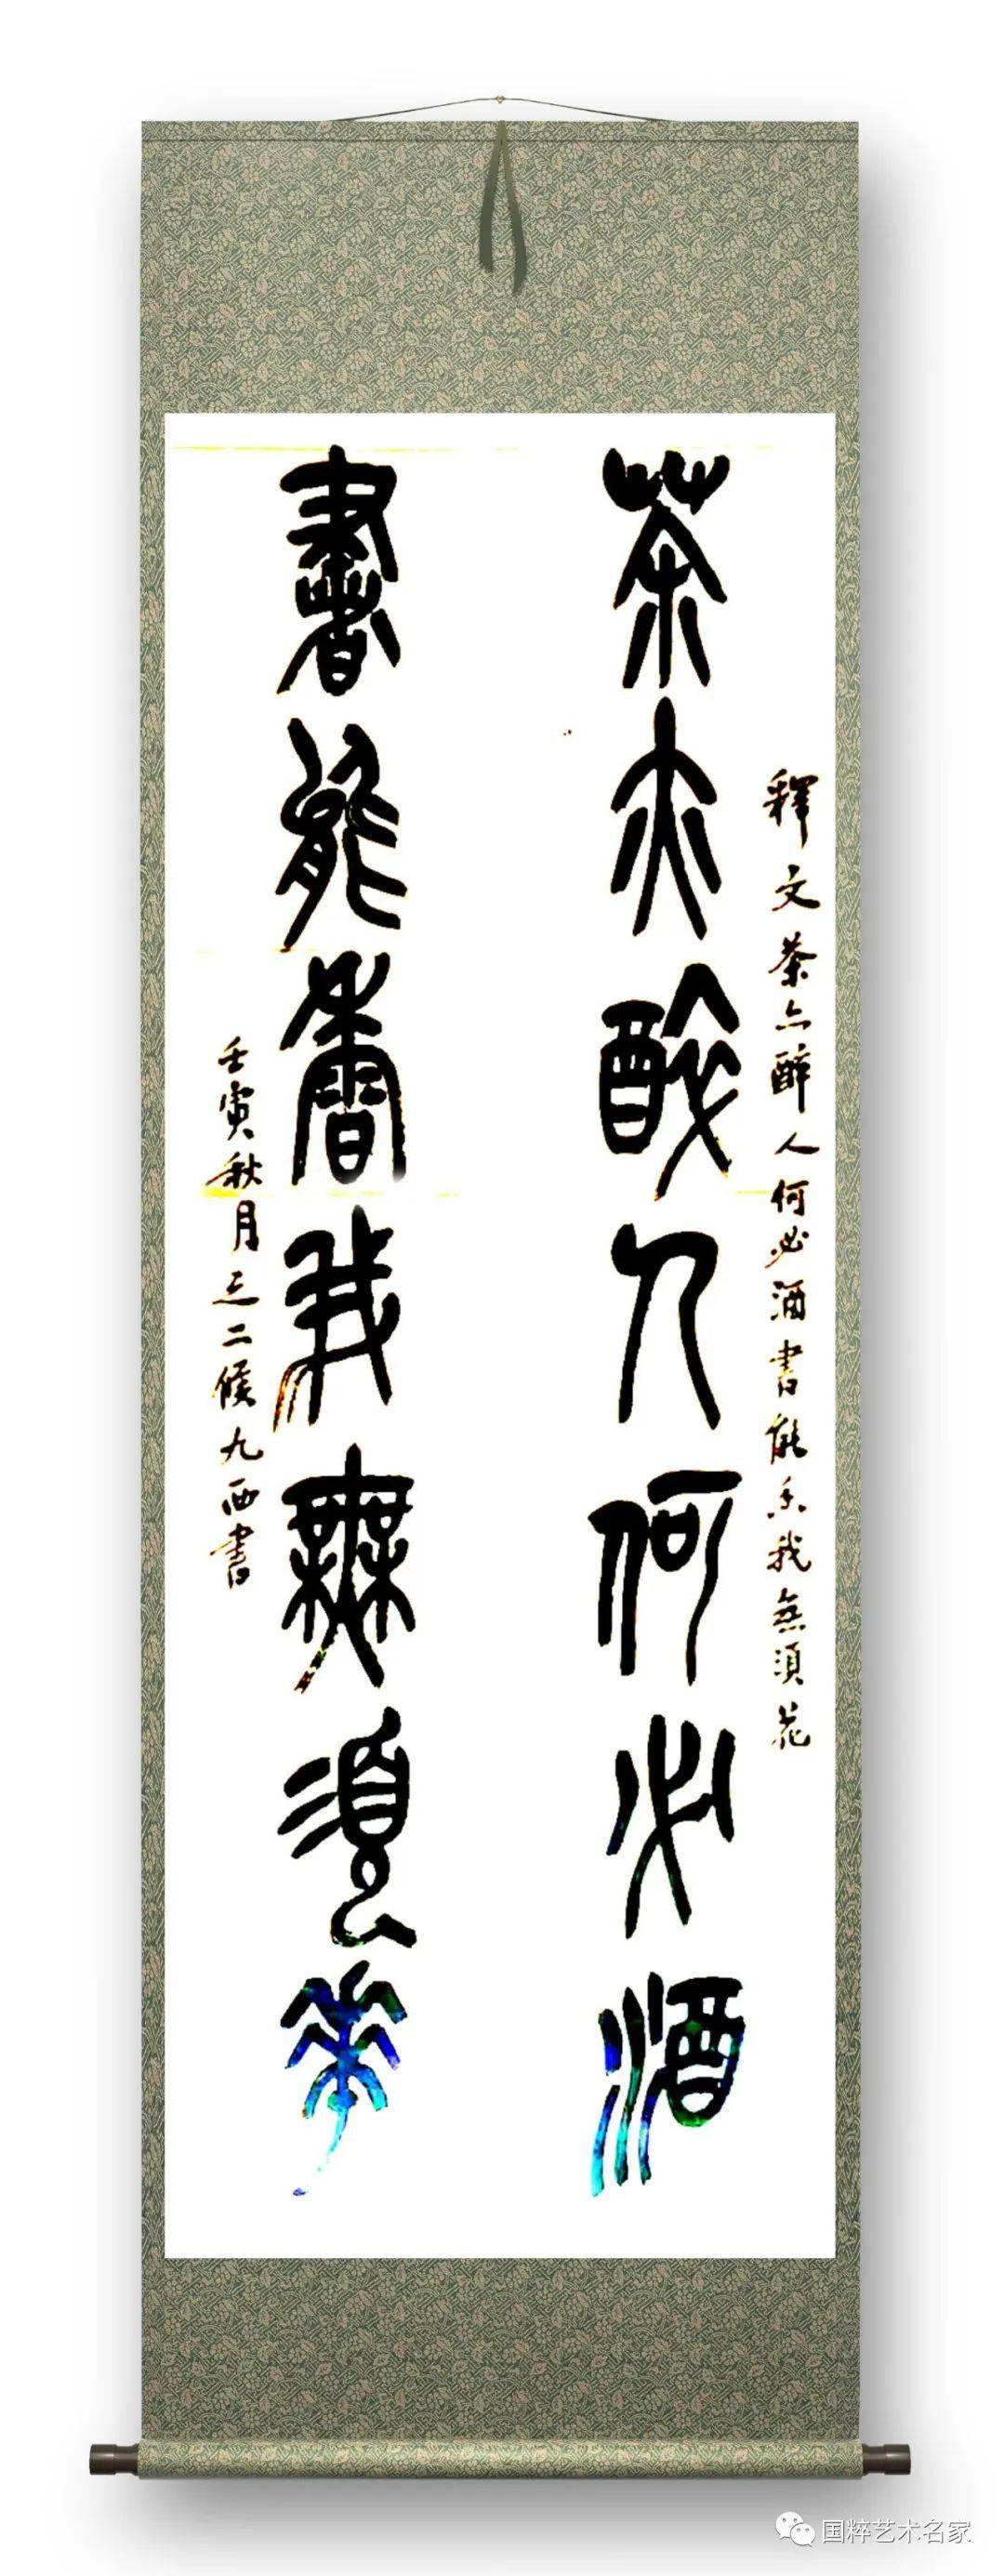 釋文茶亦醉人何必酒書能香我無須花
茶亦醉人何必酒
書能香我無須華
壬寅秋月之二候九西書
国粹艺术名家